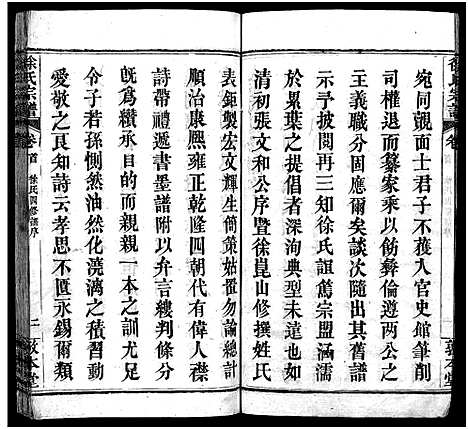 宛同覿面士君子不獲入官史館筆削
司權退而纂家乘以敘彝倫遵兩公之
主義職分固應爾矣談次出其舊譜
示予披閱再三知徐氏誼篤宗盟涵濡
於累葉之提倡者深洵典型未達也如
清初張文和公序暨徐崑山修撰姓氏
表鉅製宏文輝生簡策姑置勿論總計
順治康熙雍正乾隆四朝代有偉人襟
詩帶禮遞書墨譜附以弁言縷判條分
既為纘承目的而親親一本之訓尤足
令子若孫惻然油然化澆漓之積習動
愛敬之良知詩云孝思不匱永錫爾類
徐氏宗譜
卷首
徐氏四修譜序
二
敦本堂
徐氏宗譜
卷首
敦本堂